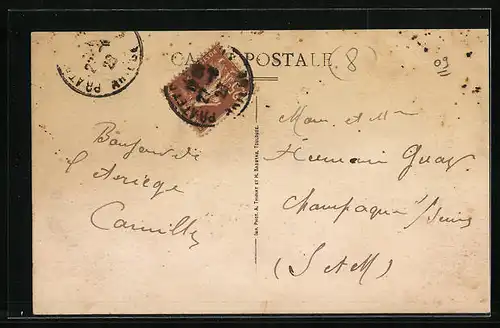 CARTE POSTALE
(8)
09
Bonjour de
l'Ariège
Camille
Imp. Phot. A. Thiriat et H. Basuyau, Toulouse.
Mons et Mme
Germain
Champagne s/ Seine
(S et M)